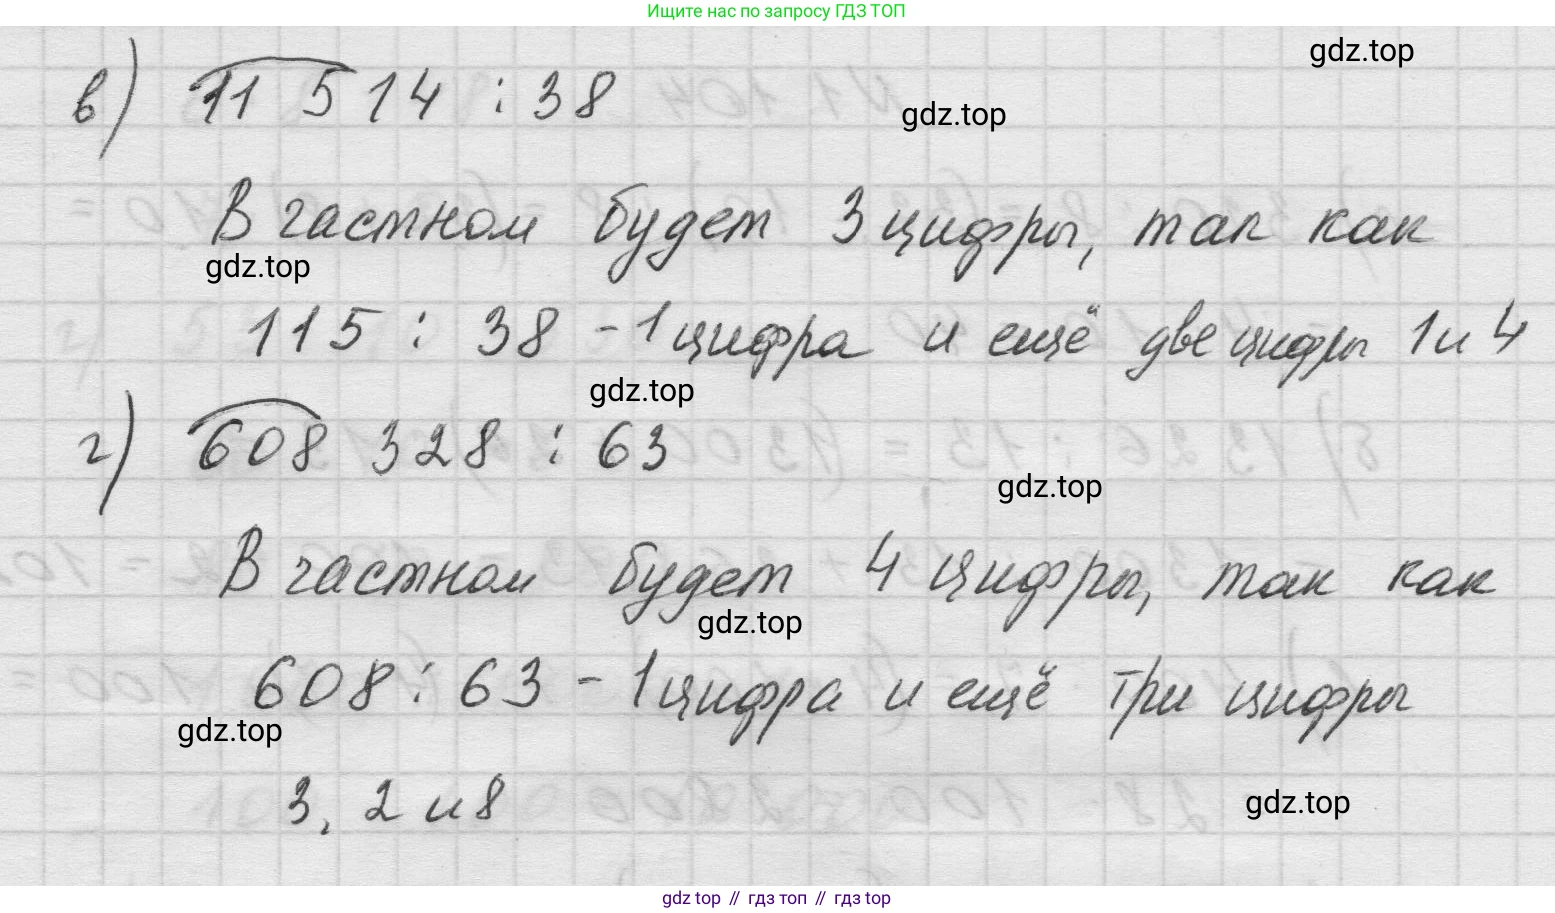 Ищите нас по запросу ГДЗ ТОП
gdz.top
в) 11 514 : 38
gdz.top
В частном будет 3 цифры, так как
gdz.top
115 : 38 - 1 цифра и ещё две цифры 1 и 4
gdz.top
г) 608 328 : 63
gdz.top
В частном будет 4 цифры, так как
gdz.top
608 : 63 - 1 цифра и ещё три цифры
gdz.top
3, 2 и 8
gdz.top
gdz top // гдз топ // гдз top